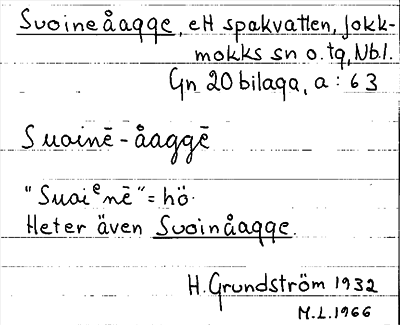 Suoineåagge, ett spakvatten, Jokk-
mokks sn o. tg, Nbl.
Gn 20 bilaga, a: 63
Suoinē-åaggē
"Suaiᵉnē" = hö.
Heter även Suoinåagge.
H. Grundström 1932
M.L. 1966